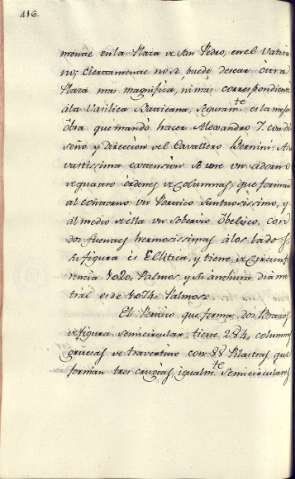 416.
monae en la Plaza de San Pedro, en el Vatica
no; ciertamente no se puede desear otra
Plaza mas magnifica, ni mas correspondiente
á la Vasilica Vaticana, seguram.te es la mejor
óbra que mandó hacer Alexandro 7. con di
seño, y direccion del Cavallero Bernini. Su
vastissima extension tiene un adorno
de quatro órdenes de Columnas, que forman
al contorno un Portico suntuosissimo, y
al medio de ella un sobervio Obelisco, con
dos fuentes hermosissimas á los lados. Su
figura es Elitica, y tiene de circunfe
rencia 4020. Palmos y su anchura diáme
tral es de 1074. Palmos.
El Portico que forma dos Brazos
de figura semicircular, tiene 284. columnas
gruesas de travertino con 88 Pilastras, que
forman tres crugias, igualm.te semicirculares